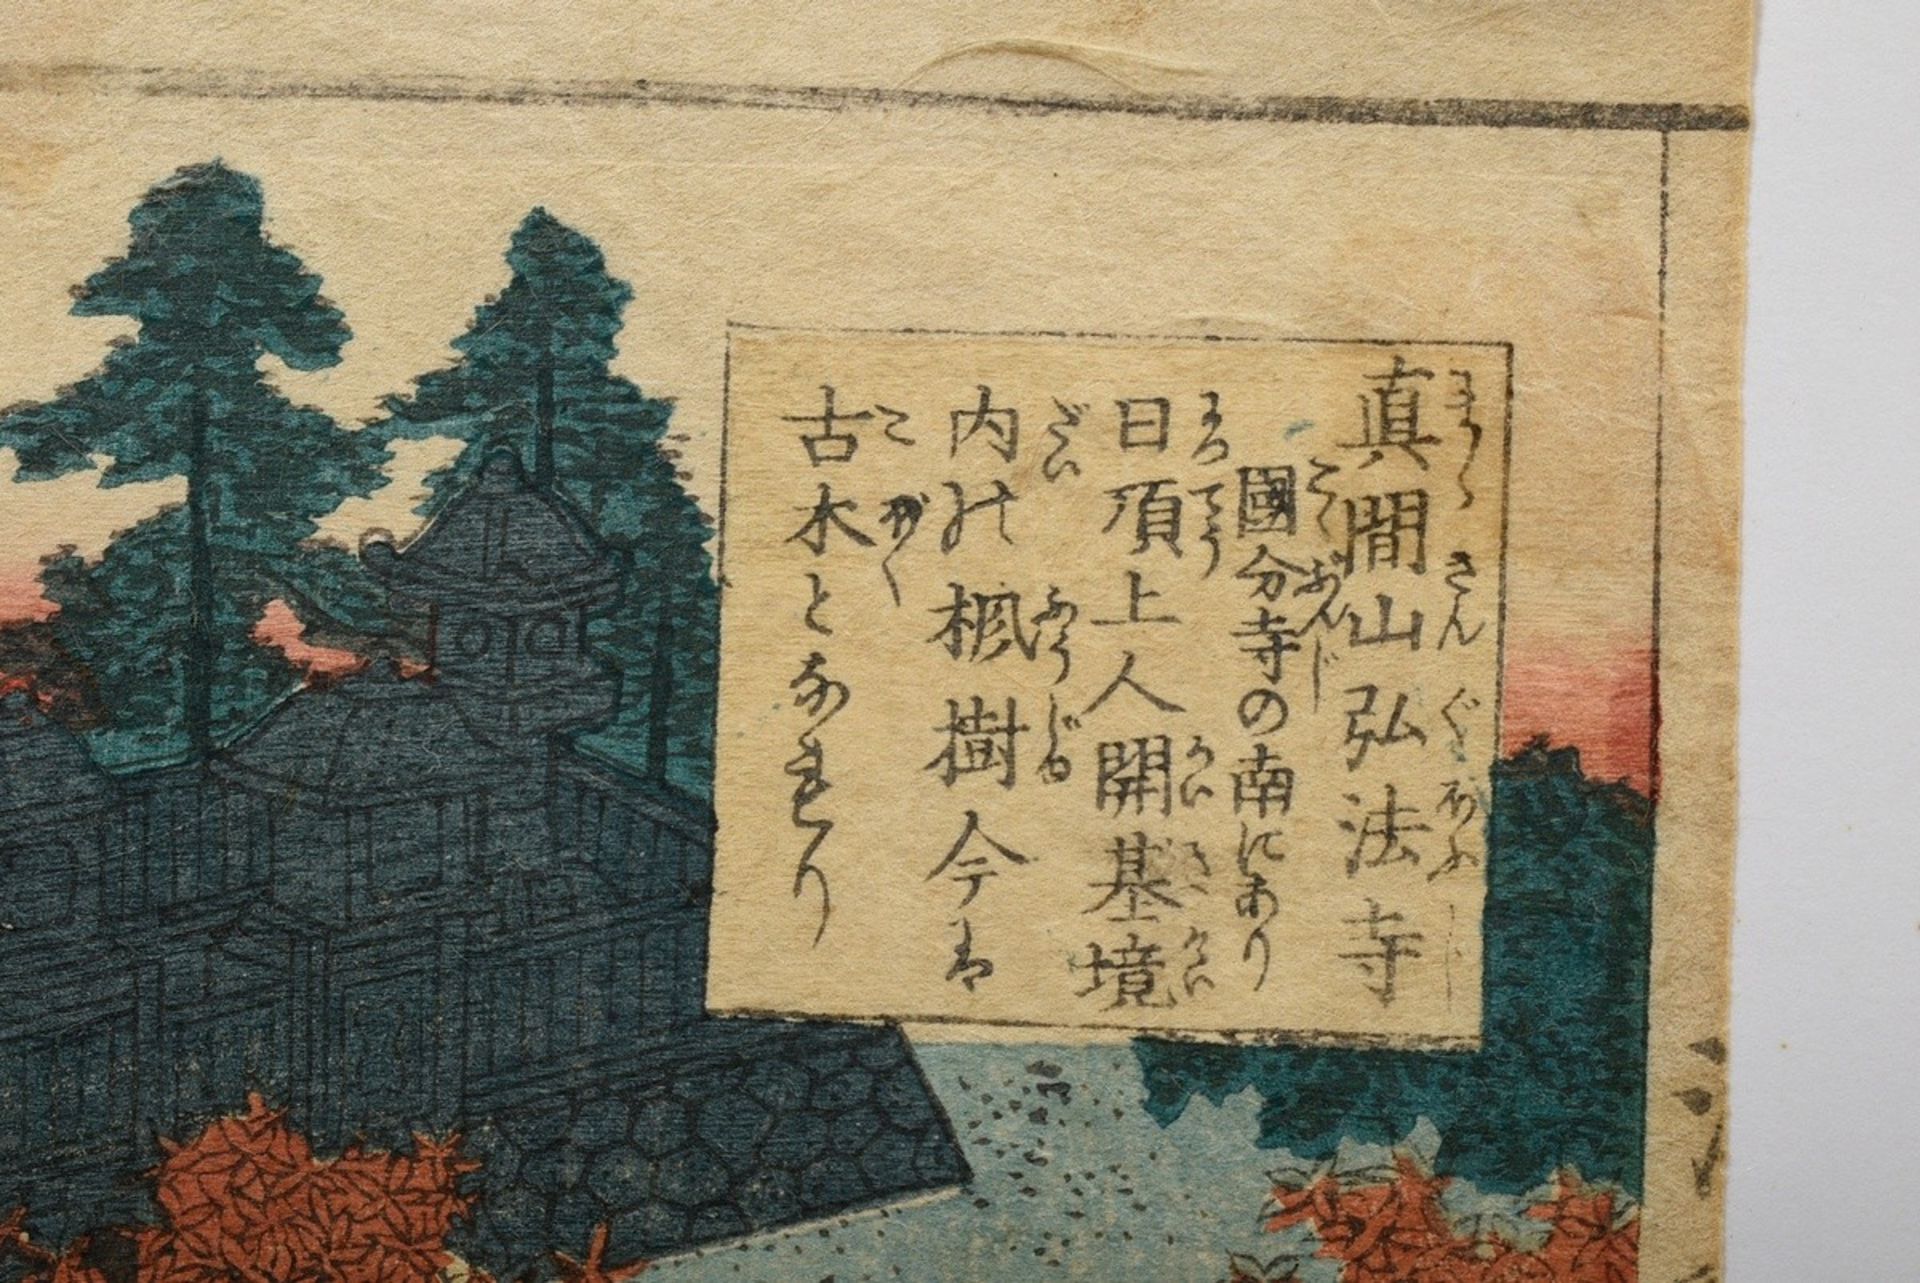 真間山弘法寺
國分寺の南にあり
日頂上人開基境
内の楓樹今は
古木となれり